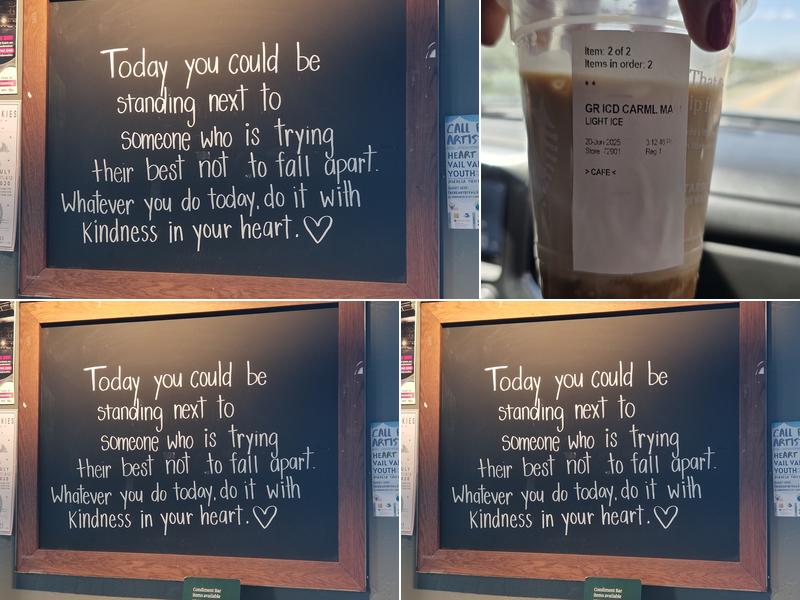 Today you could be
standing next to
someone who is trying
their best not to fall apart.
Whatever you do today, do it with
Kindness in your heart.
CALL F
ARTIS
HEART
VAIL VAL
YOUTH
Item: 2 of 2
Items in order: 2
GR ICD CARML MA
LIGHT ICE
20-Jun-2025
Store 72901 Reg 1
> CAFE <
Today you could be
standing next to
someone who is trying
their best not to fall apart.
Whatever you do today, do it with
Kindness in your heart.
CALL F
ARTIS
HEART
VAIL VAL
YOUTH
Condiment Bar
Items available
Today you could be
standing next to
someone who is trying
their best not to fall apart.
Whatever you do today, do it with
Kindness in your heart.
CALL F
ARTIS
HEART
VAIL VAL
YOUTH
Condiment Bar
Items available